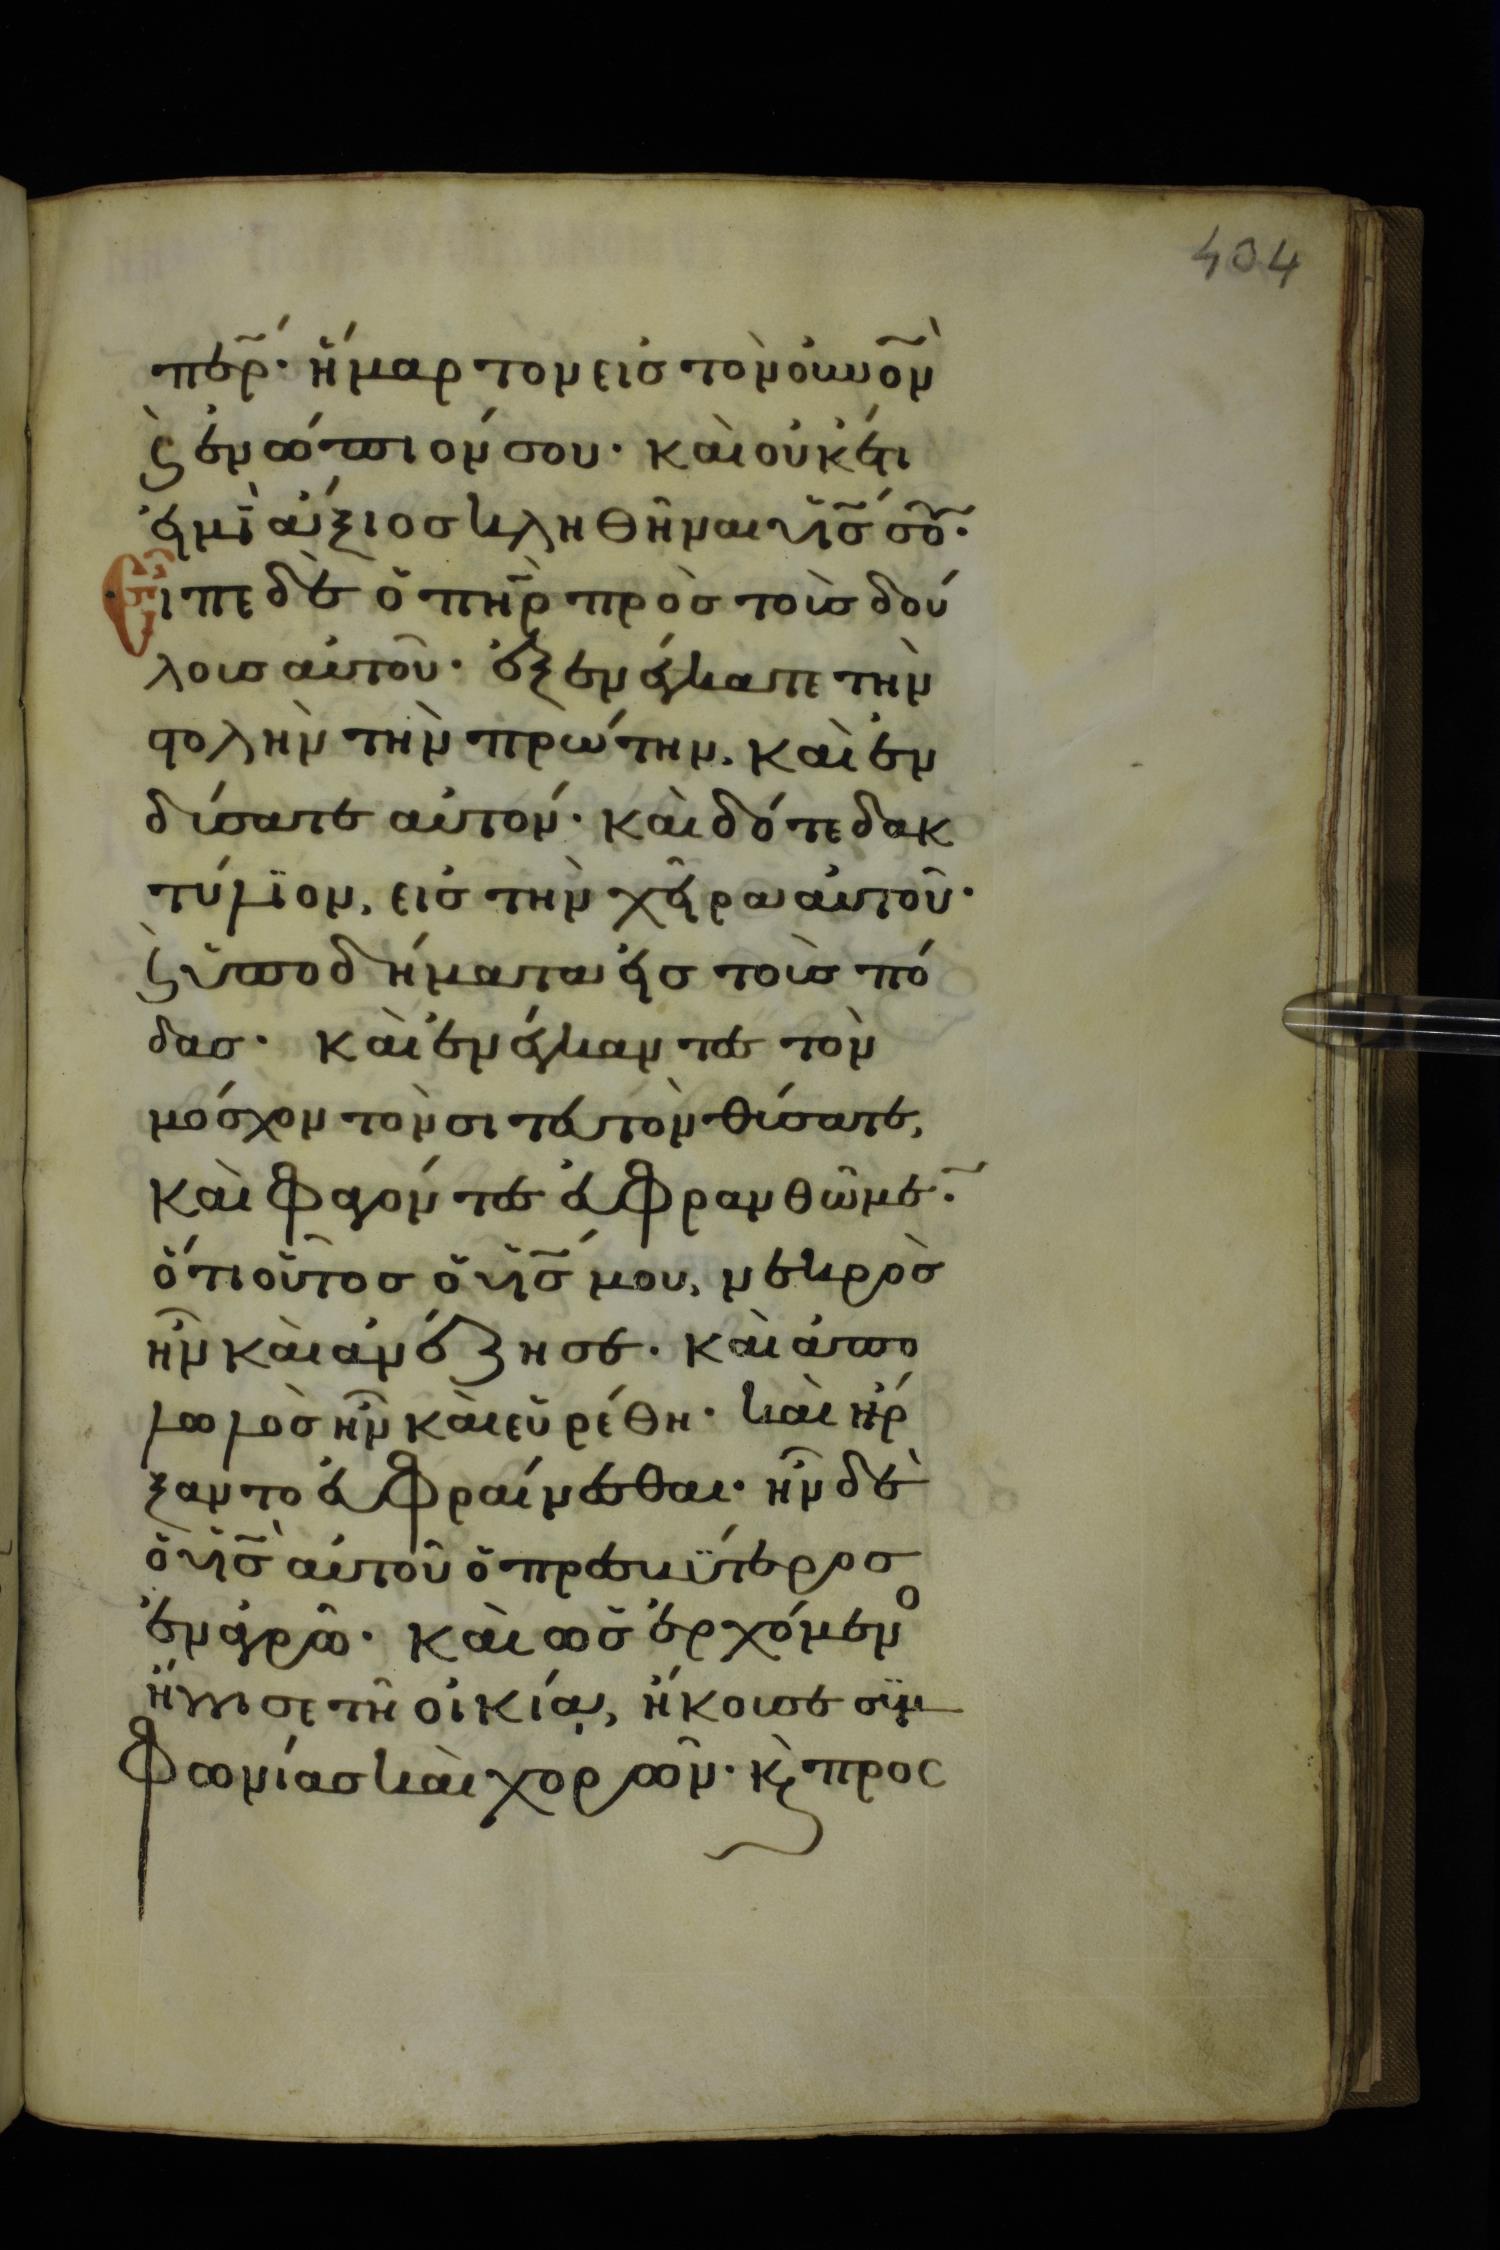 434
περ· ἥμαρτον εἰς τὸν οὐνον
ϗ ἐνώπιόν σου· καὶ οὐκέτι
εἰμὶ ἄξιος κληθῆναι υἱς σου·
Εἶπε δὲ ὁ πηρ πρὸς τοὺς δού
λους αὐτοῦ· ἐξενέγκατε τὴν
στολὴν τὴν πρώτην, καὶ ἐν
δύσατε αὐτόν· καὶ δότε δακ
τύλιον, εἰς τὴν χεῖρα αὐτοῦ·
ϗ ὑποδήματα εἰς τοὺς πό
δας· καὶ ἐνέγκαντες τὸν
μόσχον τὸν σιτευτὸν θύσατε,
καὶ φαγόντες εὐφρανθῶμεν·
ὅτι οὗτος ὁ υἱς μου, νεκρὸς
ἦν καὶ ἀνέζησε· καὶ ἀπο
λωλὸς ἦν καὶ εὑρέθη· καὶ ἤρ
ξαντο εὐφραίνεσθαι· ἦν δὲ
ὁ υἱς αὐτοῦ ὁ πρεσβύτερος
ἐν ἀγρῶ· καὶ ὡς ἐρχόμενο
ἤγγισε τῆ οἰκία, ἤκουσε συμ
φωνίας καὶ χορῶν· κ προς